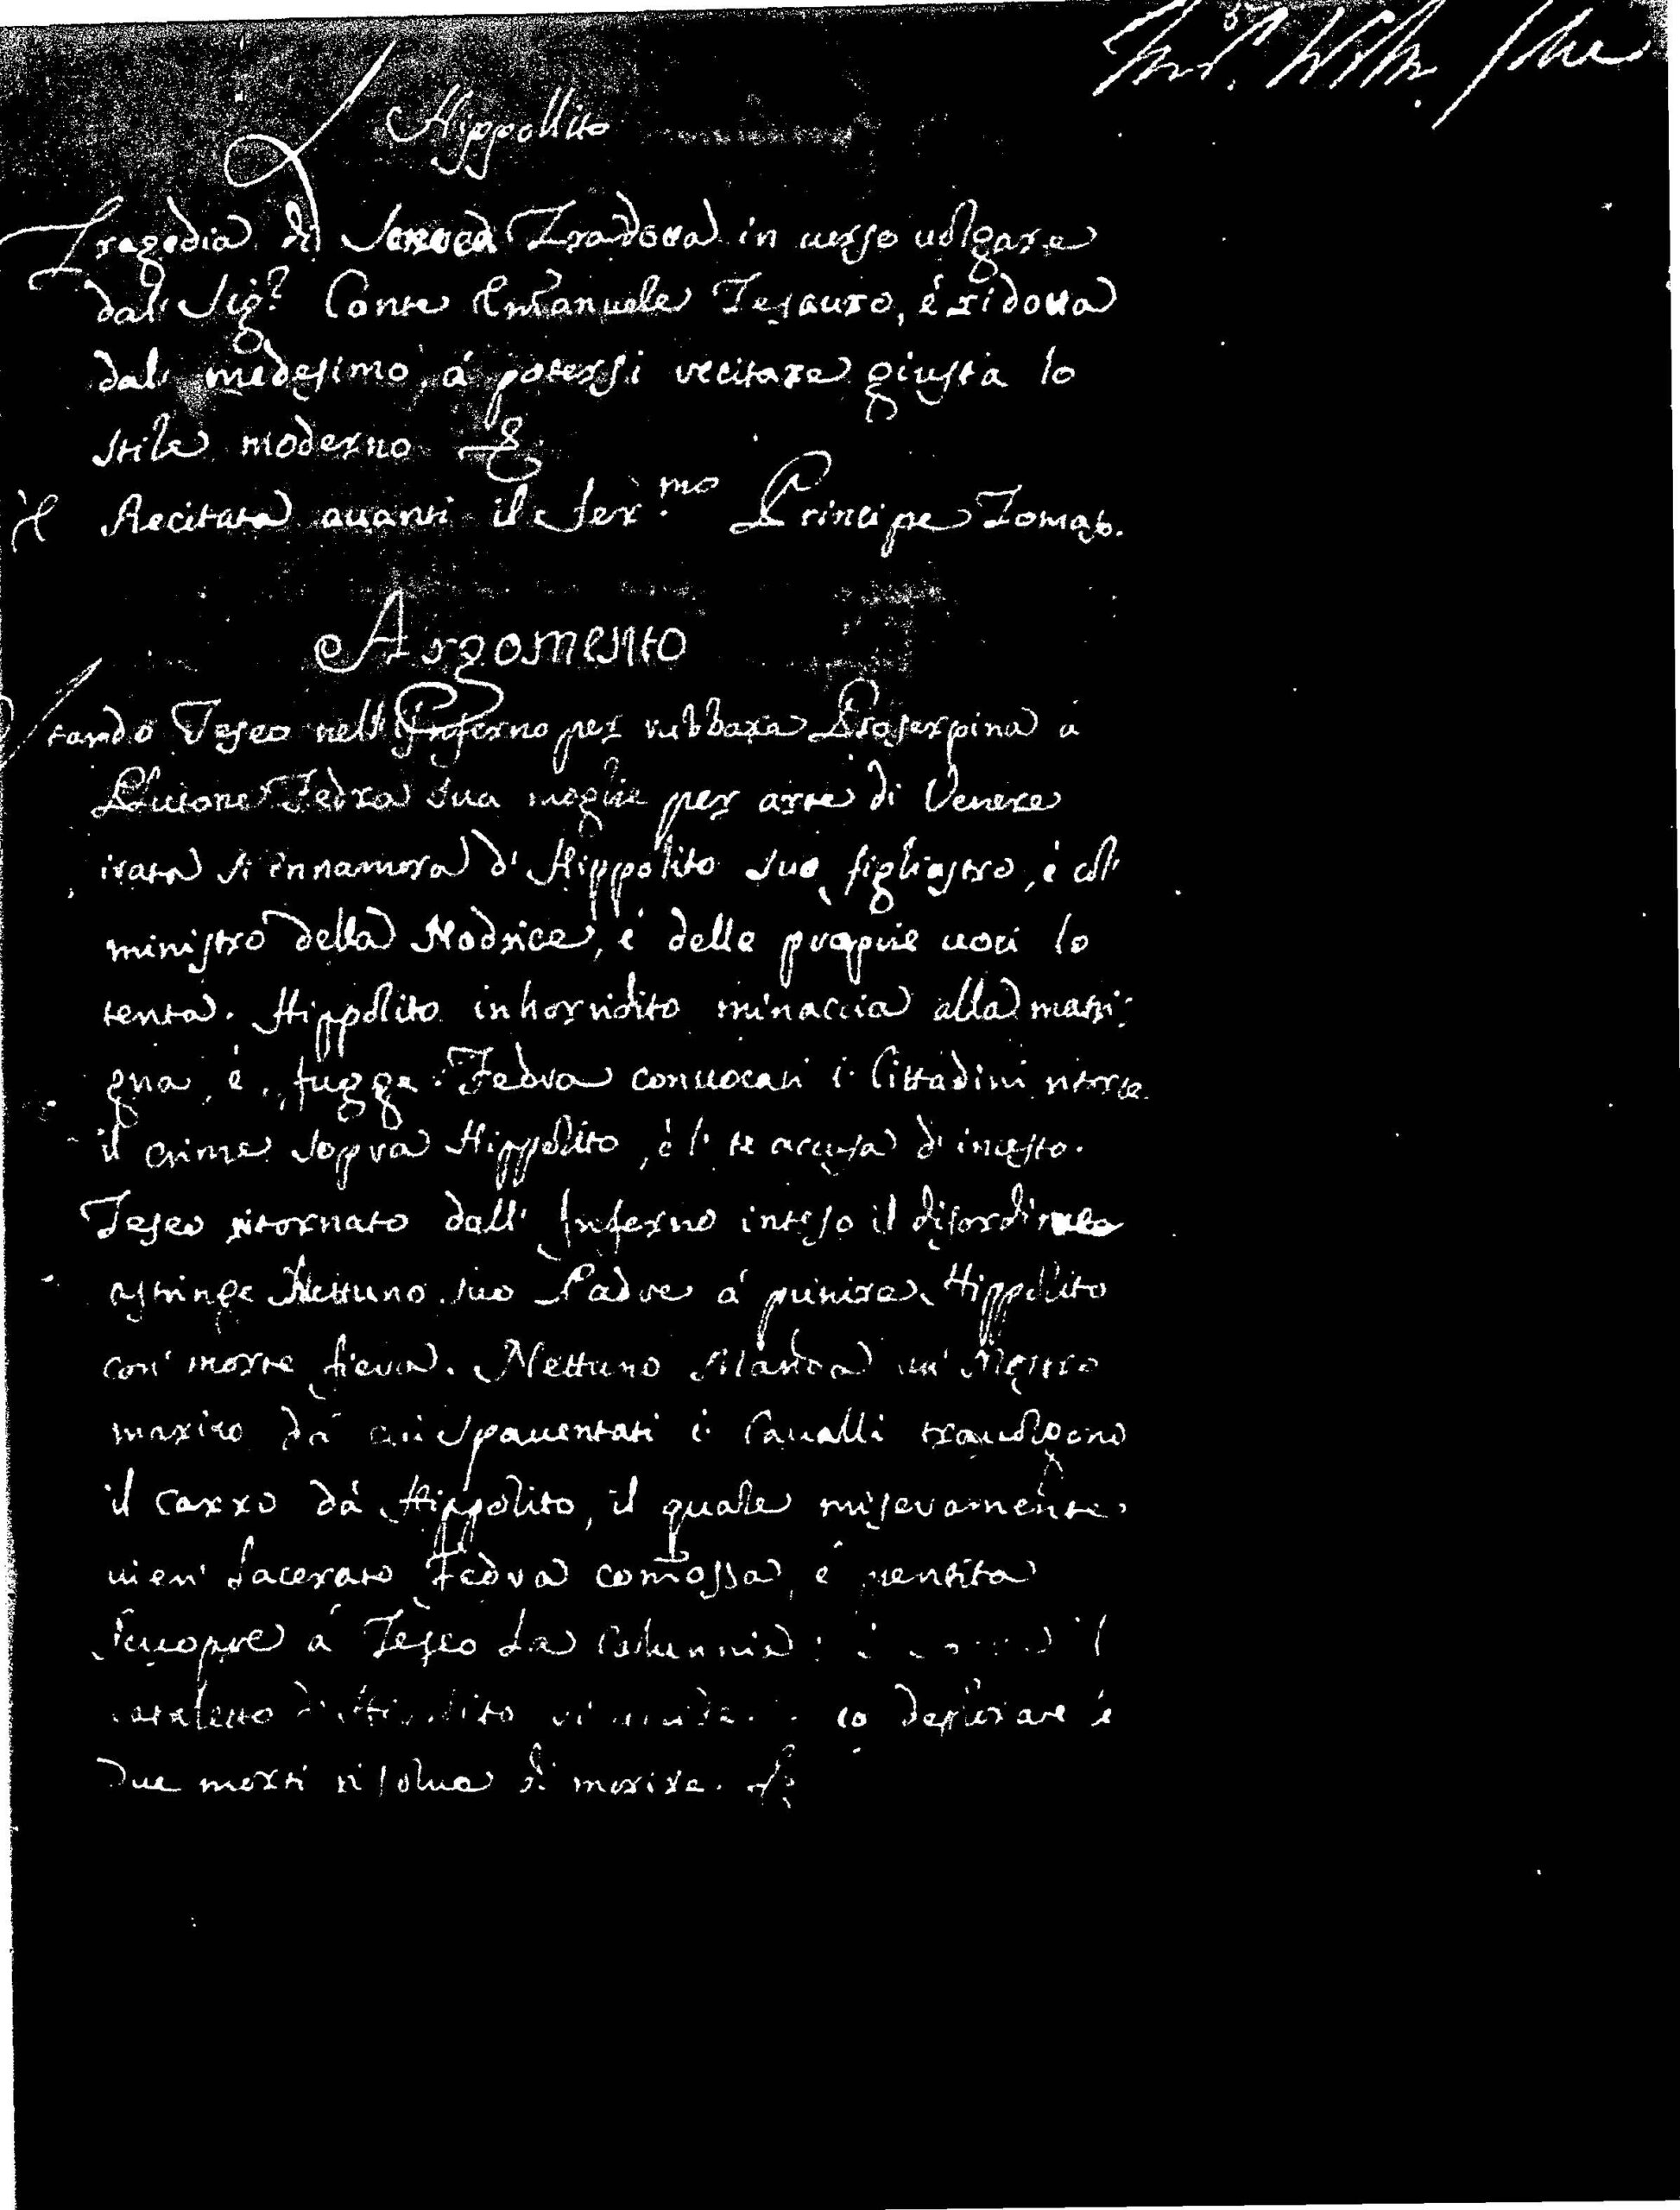 L'Hippollito
Tragedia di Seneca Tradotta in uerso uolgare
dal Sig.r Conte Emanuele Tesauro, é ridotta
dal medesimo á potersi recitare giusta lo
stile moderno
Recitata auanti il Ser.mo Principe Tomaso.
Argomento
Stando Teseo nell'Inferno per rubbare Proserpina á
Plutone Fedra sua moglie per arte di Venere
irata si innamora d'Hippolito suo figliastro, é col'
ministro della Nodrice, é delle proprie uoci lo
tenta. Hippolito inhorridito minaccia alla matri-
gna, é fugge. Fedra conuocati i Cittadini ritorce
il crime sopra Hippolito, é l' accusa d'incesto.
Teseo ritornato dall' Inferno inteso il disordine
astringe Nettuno suo Padre á punire Hippolito
con' morte fiera. Nettuno manda un' Mostro
marino dá cui spauentati i Caualli trauolgono
il carro dá Hippolito, il quale miseramente
uien' lacerato Fedra com̄ossa, é pentita
scuopre á Teseo la Calunnia: é il
cataletto d'Hippolito deplorare é
due morti risolue di morire.